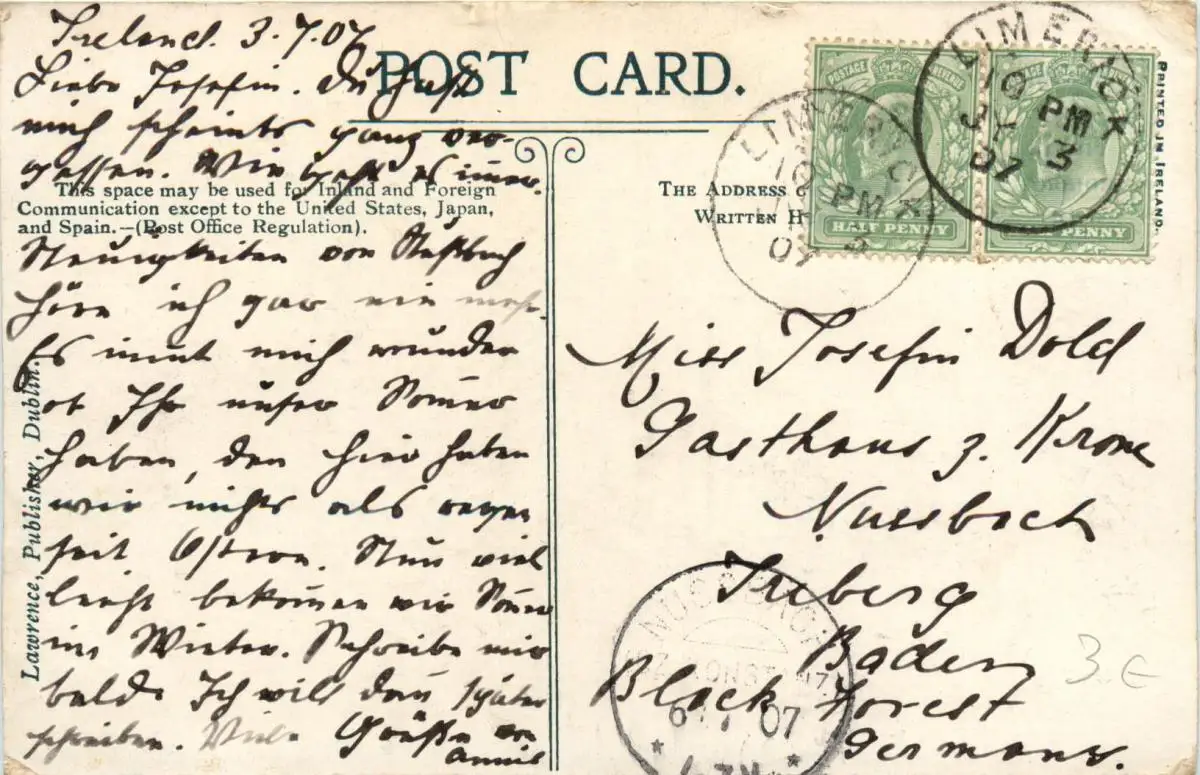 Ireland. 3.7.07
Liebe Josefin. Du hast
mich scheints ganz ver-
gessen. Wie geht es immer.
Neuigkeiten von Nußbach
höre ich gar nie mehr.
Es nimt mich wunder
ob Ihr unser Sommer
haben, den hier haben
wir nichts als regen
seit Ostern. Nun viel
leicht bekommen wir Sommer
im Winter. Schreibe mir
bald. Ich will dan später
schreiben. Viele Grüße von
Annie
POST CARD.
This space may be used for Inland and Foreign
Communication except to the United States, Japan,
and Spain.—(Post Office Regulation).
Lawrence, Publisher, Dublin.
THE ADDRESS
WRITTEN H
POSTAGE
HALF PENNY
POSTAGE
PENNY
LIMERICK
10 PM
07
LIMERICK
10 PM
JY 3
07
PRINTED IN IRELAND.
Miss Josefin Dold
Gasthaus z. Krone
Nussbach
Triberg
Baden
Black Forest
Germany.
NUSSBACH
07
3 €